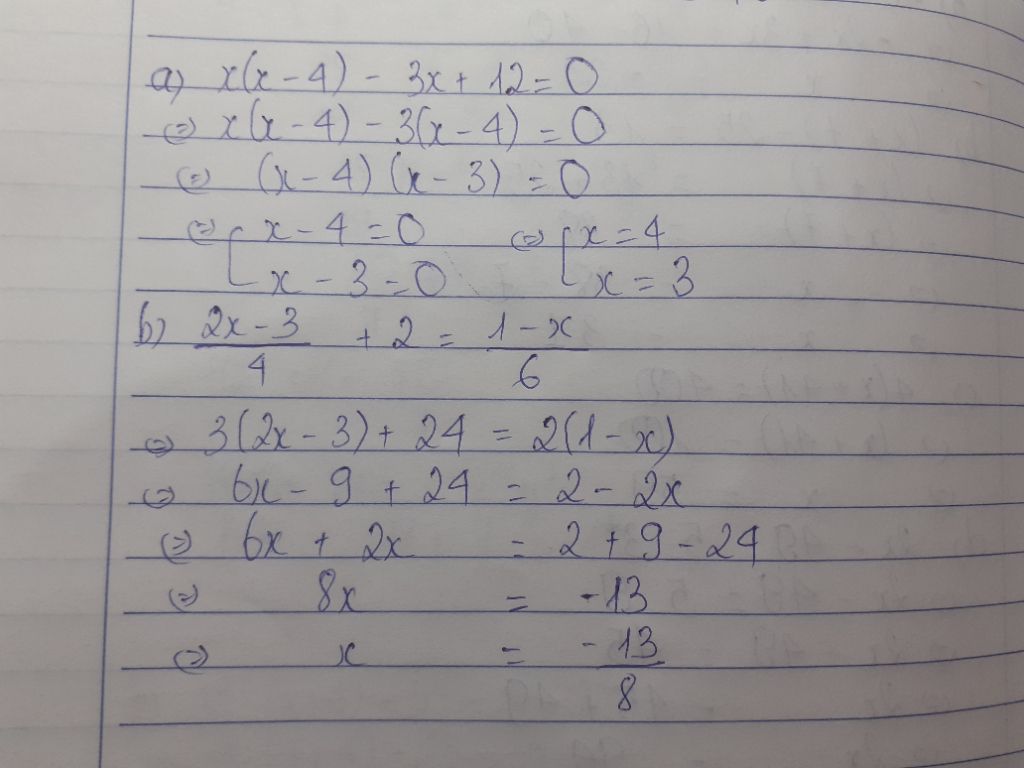 a) x(x - 4) - 3x + 12 = 0
⇔ x(x - 4) - 3(x - 4) = 0
⇔ (x - 4) (x - 3) = 0
⇔ [ x - 4 = 0 ⇔ [ x = 4
x - 3 = 0 x = 3
b) (2x - 3)/4 + 2 = (1 - x)/6
⇔ 3(2x - 3) + 24 = 2(1 - x)
⇔ 6x - 9 + 24 = 2 - 2x
⇔ 6x + 2x = 2 + 9 - 24
⇔ 8x = -13
⇔ x = -13/8